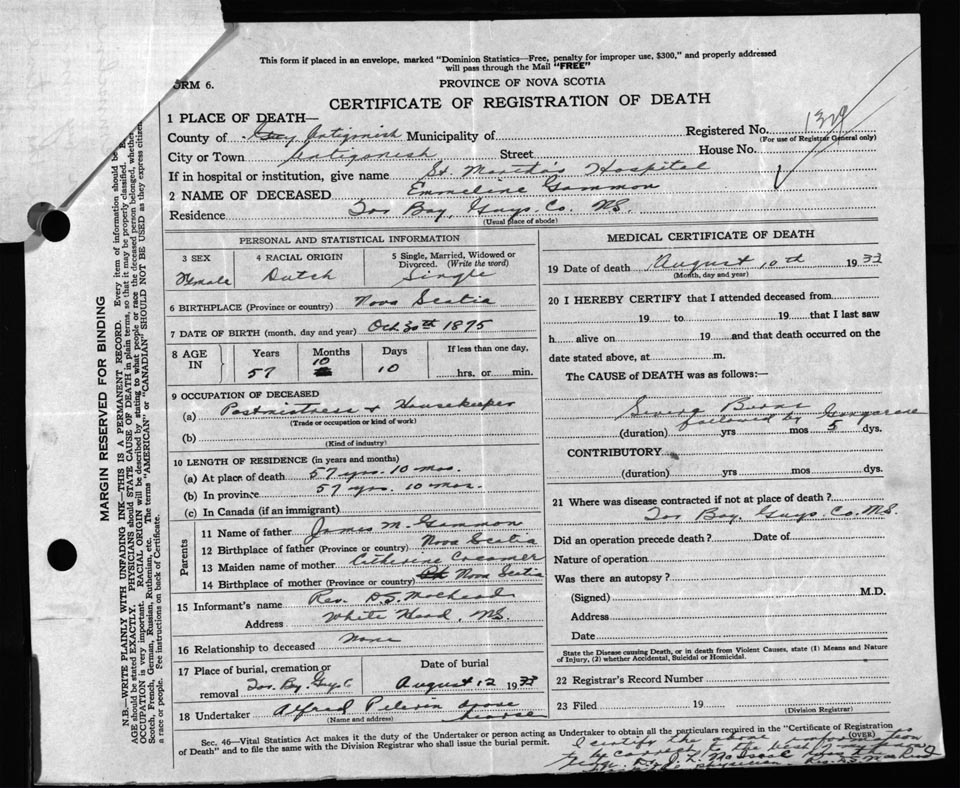 This form if placed in an envelope, marked "Dominion Statistics—Free, penalty for improper use, $300," and properly addressed
will pass through the Mail "FREE"
ORM 6.
PROVINCE OF NOVA SCOTIA
CERTIFICATE OF REGISTRATION OF DEATH
1 PLACE OF DEATH—
County of Guy Antigonish Municipality of
Registered No.
(For use of Registrar General only)
City or Town Antigonish Street House No.
If in hospital or institution, give name St. Martha's Hospital
2 NAME OF DECEASED Emmeline Gammon
Residence Tor Bay, Guys. Co. N.S.
(Usual place of abode)
PERSONAL AND STATISTICAL INFORMATION
3 SEX
Female
4 RACIAL ORIGIN
Dutch
5 Single, Married, Widowed or
Divorced. (Write the word)
Single
6 BIRTHPLACE (Province or country) Nova Scotia
7 DATE OF BIRTH (month, day and year) Oct 30th 1875
8 AGE
IN
Years
57
Months
10
Days
10
If less than one day,
hrs. or min.
9 OCCUPATION OF DECEASED
(a) Postmistress & Housekeeper
(Trade or occupation or kind of work)
(b)
(Kind of industry)
10 LENGTH OF RESIDENCE (in years and months)
(a) At place of death 57 yrs. 10 mos.
(b) In province 57 yrs. 10 mos.
(c) In Canada (if an immigrant)
Parents
11 Name of father James M. Gammon
12 Birthplace of father (Province or country) Nova Scotia
13 Maiden name of mother Catherine Creamer
14 Birthplace of mother (Province or country) Nova Scotia
15 Informant's name Rev. D.S.
Address White Head, N.S.
16 Relationship to deceased None
17 Place of burial, cremation or
removal Tor. Bay. Guys C
Date of burial
August 12 1933
18 Undertaker Alfred Goose
(Name and address)
MEDICAL CERTIFICATE OF DEATH
19 Date of death August 10th 1933
(Month, day and year)
20 I HEREBY CERTIFY that I attended deceased from
19 to 19 that I last saw
h alive on 19 and that death occurred on the
date stated above, at m.
The CAUSE of DEATH was as follows:—
Severe Burns
followed by Gangarene
(duration) yrs mos 5 dys.
CONTRIBUTORY
(duration) yrs mos dys.
21 Where was disease contracted if not at place of death?
Tor Bay, Guys. Co. N.S.
Did an operation precede death? Date of
Nature of operation
Was there an autopsy?
(Signed) M.D.
Address
Date
State the Disease causing Death, or in death from Violent Causes, state (1) Means and Nature
of Injury, (2) whether Accidental, Suicidal or Homicidal.
22 Registrar's Record Number
23 Filed 19
(Division Registrar)
(OVER)
Sec. 46—Vital Statistics Act makes it the duty of the Undertaker or person acting as Undertaker to obtain all the particulars required in the "Certificate of Registration
of Death" and to file the same with the Division Registrar who shall issue the burial permit.
I certify the above information
to be correct to the best of my
MARGIN RESERVED FOR BINDING
N.B.—WRITE PLAINLY WITH UNFADING INK—THIS IS A PERMANENT RECORD. Every item of information should be
AGE should be stated EXACTLY. PHYSICIANS should STATE CAUSE OF DEATH in plain terms, so that it may be properly classified.
OCCUPATION is very important. RACIAL ORIGIN will be described by stating to what people or race the deceased person belonged, whether
Scotch, French, German, Russian, Ruthenian, etc. The terms "AMERICAN" or "CANADIAN" SHOULD NOT BE USED as they express citizen
a race or people. See instructions on back of Certificate.